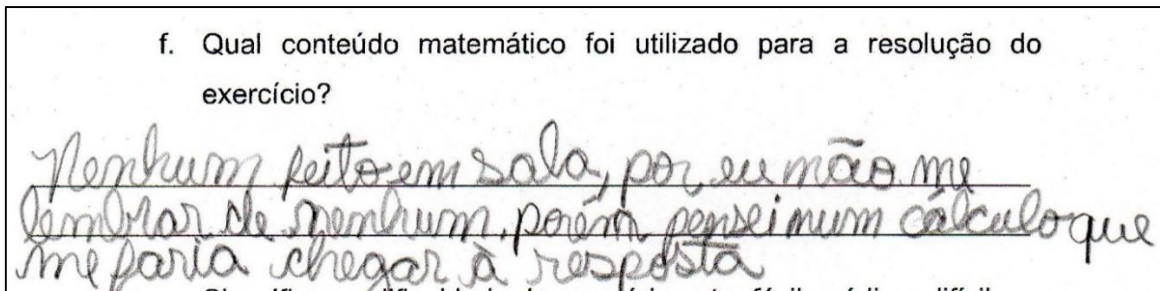 f. Qual conteúdo matemático foi utilizado para a resolução do
exercício?
Nenhum feito em sala, por eu não me
lembrar de nenhum, porém pensei num cálculo que
me faria chegar à resposta